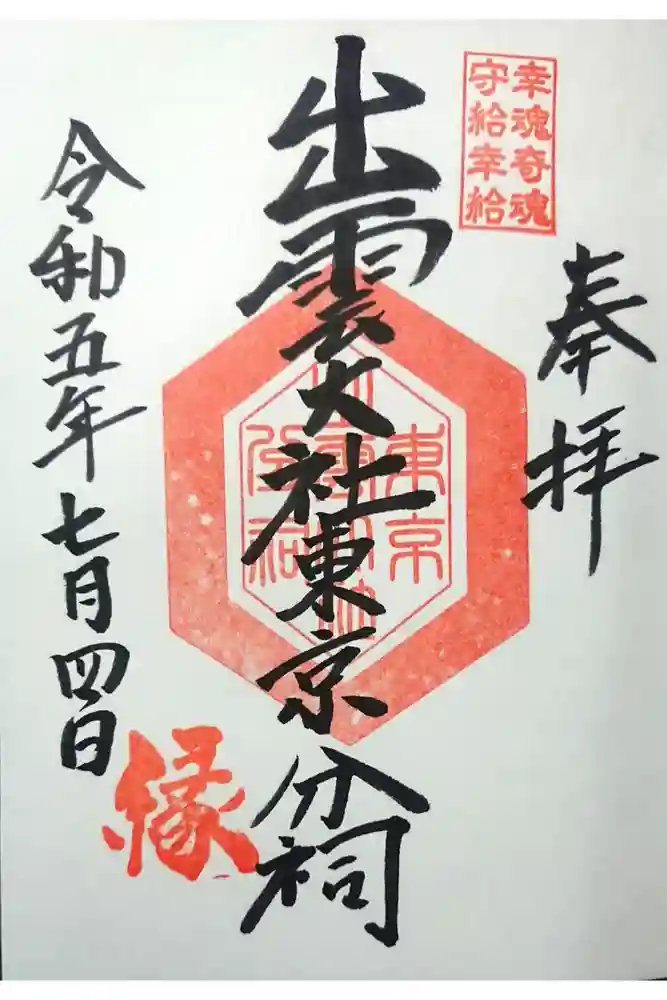 奉拝
幸魂奇魂
守給幸給
出雲大社東京分祠
東京
出雲大社
分祠
令和五年七月四日
縁